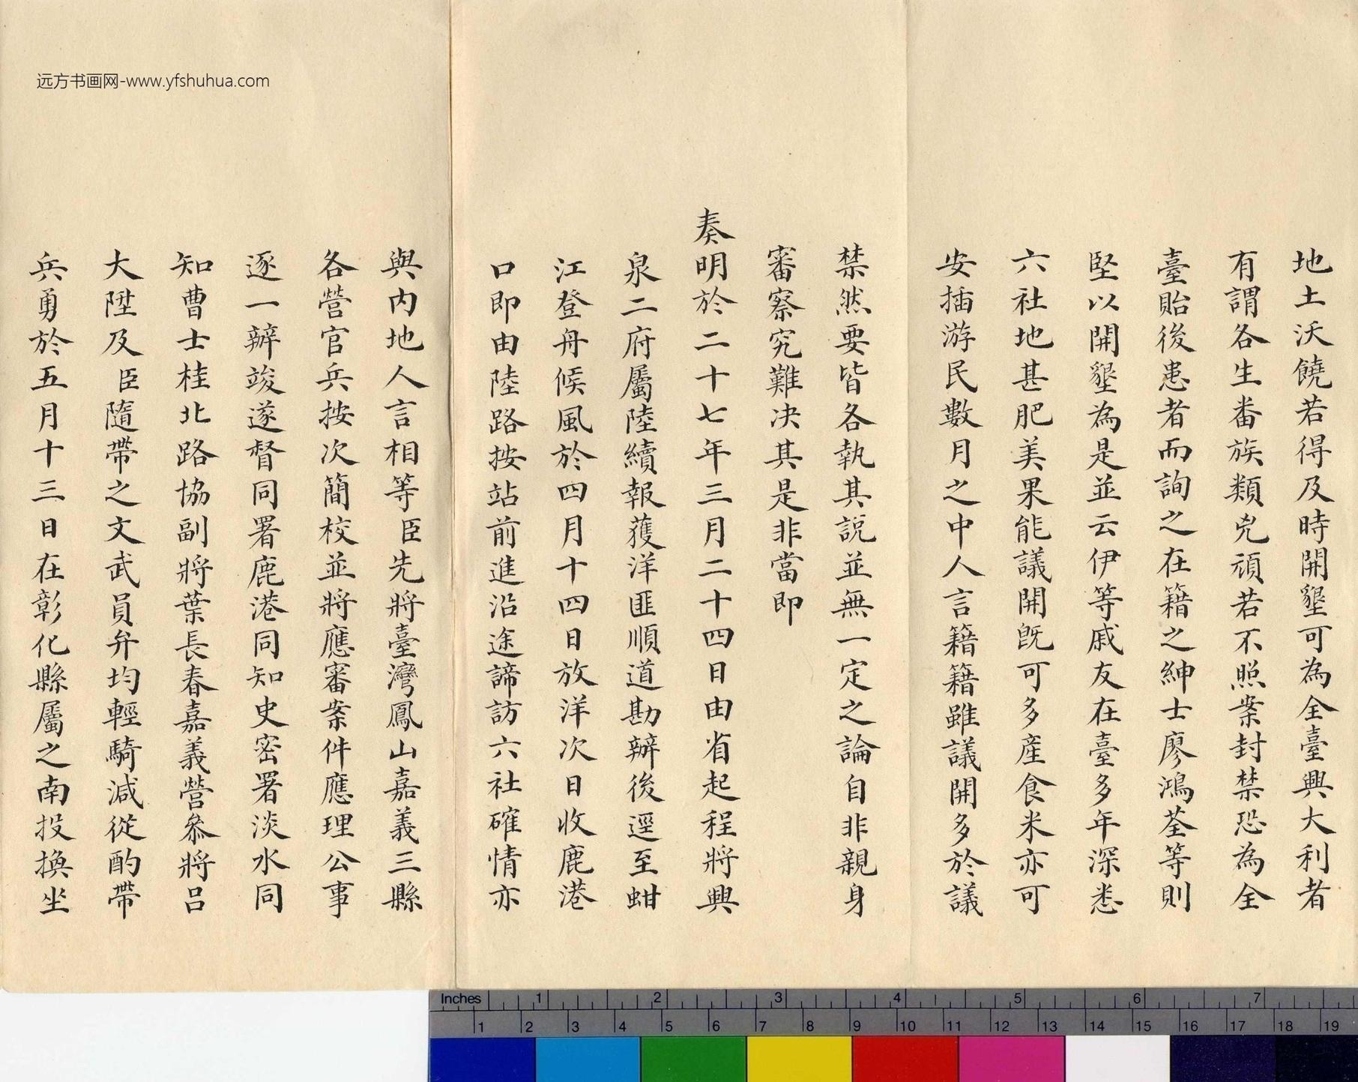 远方书画网-www.yfshuhua.com
地土沃饒若得及時開墾可為全臺興大利者
有謂各生畨族類兇頑若不照案封禁恐為全
臺貽後患者而詢之在籍之紳士廖鴻荃等則
堅以開墾為是並云伊等戚友在臺多年深悉
六社地甚肥美果能議開既可多產食米亦可
安插游民數月之中人言籍籍雖議開多於議
禁然要皆各執其說並無一定之論自非親身
審察究難決其是非當即
奏明於二十七年三月二十四日由省起程將興
泉二府屬陸續報獲洋匪順道勘辦後逕至蚶
江登舟候風於四月十四日放洋次日收鹿港
口即由陸路按站前進沿途諦訪六社確情亦
與內地人言相等臣先將臺灣鳳山嘉義三縣
各營官兵按次簡校並將應審案件應理公事
逐一辦竣遂督同署鹿港同知史密署淡水同
知曹士桂北路協副將葉長春嘉義營叅將呂
大陞及臣隨帶之文武員弁均輕騎減從酌帶
兵勇於五月十三日在彰化縣屬之南投換坐
Inches 1 2 3 4 5 6 7
1 2 3 4 5 6 7 8 9 10 11 12 13 14 15 16 17 18 19